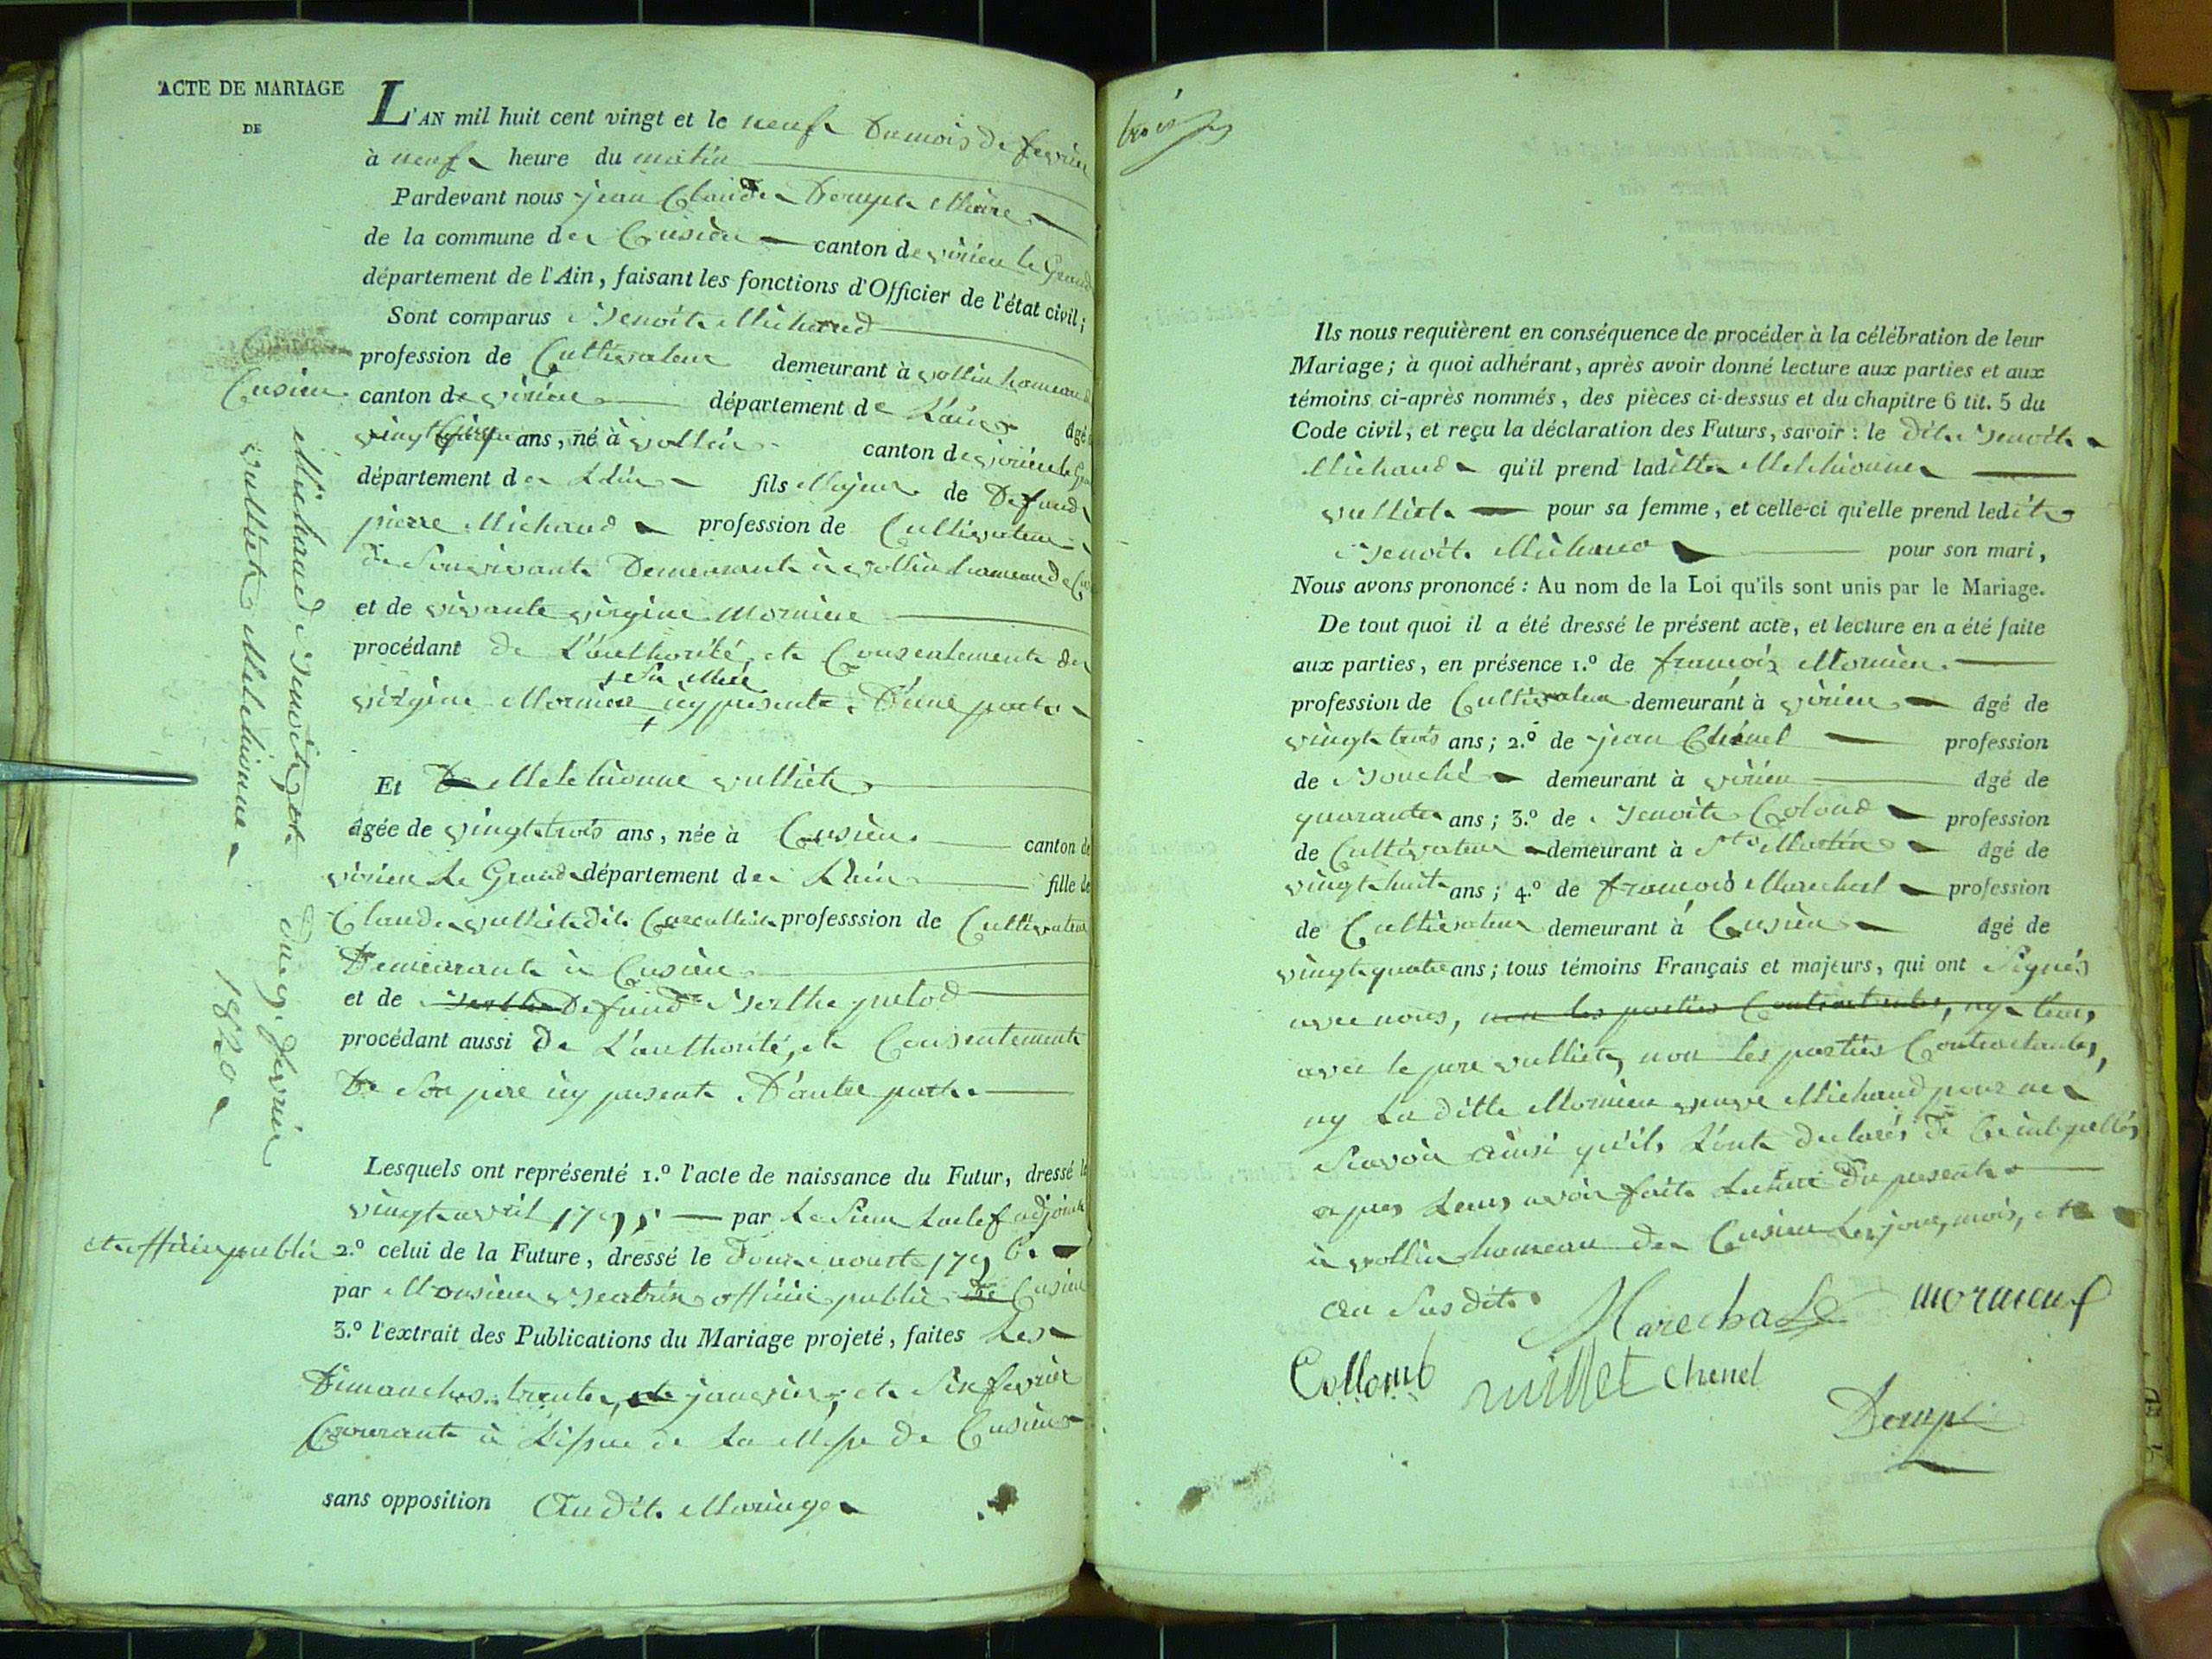 ACTE DE MARIAGE
DE
Cusieu
Michaud Benoit, et
vulliet Melchionne
du 9. fevrier
1820
L'AN mil huit cent vingt et le neuf Du mois de fevrier
à neuf heure du matin
Pardevant nous jean Claude Dompt Maire
de la commune de Cusieu canton de virieu le Grand
département de l'Ain, faisant les fonctions d'Officier de l'état civil;
Sont comparus Benoit Michaud
profession de Cultivateur demeurant à vollin hameau de
canton de virieu département de L'ain âgé
vingt ans, né à vollin canton de virieu le
département de L'ain fils Majeur de Defund
pierre Michaud profession de Cultivateur
de Son vivant Demeurant à vollin hameau de
et de vivante virgine Mornieu
procédant de L'authorité, et Consentement de
+ Sa Mere
virgine Mornieu + icy presente. D'une part
Et Melchionne vulliet
âgée de vingt trois ans, née à Cusieu canton de
virieu Le Grand département de L'ain fille de
Claude vulliet dit professsion de Cultivateur
Demeurant à Cusieu
et de Berthe Defund Berthe putod
procédant aussi de L'authorité, et Consentement
De Son pere icy present D'autre part.
Lesquels ont représenté 1.º l'acte de naissance du Futur, dressé le
vingt avril 1795 par Le Sieur adjoint
et officier public 2.º celui de la Future, dressé le Douze aoust 1796
par Monsieur officier public de Cusieu
3.º l'extrait des Publications du Mariage projeté, faites Les
Dimanches trente, janvier, et Six fevrier
Courant à L'issue de La Messe de Cusieu
sans opposition Au dit Mariage
trois
Ils nous requièrent en conséquence de procéder à la célébration de leur
Mariage; à quoi adhérant, après avoir donné lecture aux parties et aux
témoins ci-après nommés, des pièces ci-dessus et du chapitre 6 tit. 5 du
Code civil, et reçu la déclaration des Futurs, savoir: le dit Benoit
Michaud qu'il prend laditte Melchionne
vulliet pour sa femme, et celle-ci qu'elle prend ledit
Benoit Michaud pour son mari,
Nous avons prononcé: Au nom de la Loi qu'ils sont unis par le Mariage.
De tout quoi il a été dressé le présent acte, et lecture en a été faite
aux parties, en présence 1.º de françois Mornieu.
profession de Cultivateur demeurant à virieu âgé de
vingt trois ans; 2.º de jean Chenel profession
de Bouché demeurant à virieu âgé de
quarante ans; 3.º de Benoit Colomb profession
de Cultivateur demeurant à St Martin âgé de
vingt huit ans; 4.º de françois Marechal profession
de Cultivateur demeurant à Cusieu âgé de
vingt quatre ans; tous témoins Français et majeurs, qui ont Signés
avec nous, non les parties Contractantes, ny
avec le pere vulliet, non les parties Contractantes,
ny La ditte Mornieu veuve Michaud pour ne
Scavoir ainsi qu'ils L'ont declarés de Ce interpellés
apres Leurs avoir fait Lecture du present
à vollin hameau de Cusieu Les jour, mois, et
an Susdit.
Marechal mornieuf
Collomb vulliet chenel
Dompt